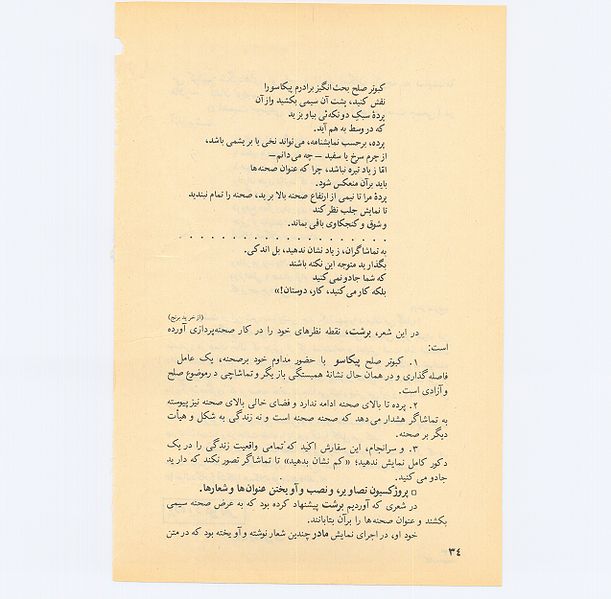 کبوتر صلح بحث انگیز برادرم پیکاسو را
نقش کنید، پشت آن سیمی بکشید و از آن
پردهٔ سبک دو تکه‌ئی بیاویزید
که در وسط به هم آید.
پرده، برحسب نمایشنامه، می‌تواند نخی یا بریشمی باشد،
از چرم سرخ یا سفید — چه می‌دانم—
امّا زیاد تیره نباشد، چرا که عنوان صحنه‌ها
باید برآن منعکس شود.
پردهٔ مرا تا نیمی از ارتفاع صحنه بالا برید، صحنه را تمام نبندید
تا نمایش جلب نظر کند
و شوق و کنجکاوی باقی بماند.
. . . . . . . . . . . . . . . . . . . .
به تماشاگران، زیاد نشان ندهید، بل اندکی.
بگذارید متوجه این نکته باشند
که شما جادو نمی‌کنید
بلکه کار می‌کنید، کار، دوستان!»
(از خرید برنج)
در این شعر، برشت، نقطه نظرهای خود را در کار صحنه‌پردازی آورده
است:
۱. کبوتر صلح پیکاسو با حضور مداوم خود برصحنه، یک عامل
فاصله‌گذاری و در همان حال نشانهٔ همبستگی بازیگر و تماشاچی درموضوع صلح
و آزادی است.
۲. پرده تا بالای صحنه ادامه ندارد و فضای خالی بالای صحنه نیز پیوسته
به تماشاگر هشدار می‌دهد که صحنه صحنه است و نه زندگی به شکل و هیأت
دیگر بر صحنه.
۳. و سرانجام، این سفارش اکید که تمامی واقعیت زندگی را در یک
دکور کامل نمایش ندهید؛ «کم نشان بدهید» تا تماشاگر تصور نکند که دارید
جادو می‌کنید.
□ پروژکسیون تصاویر، و نصب و آویختن عنوان‌ها و شعارها.
در شعری که آوردیم برشت پیشنهاد کرده بود که به عرض صحنه سیمی
بکشند و عنوان صحنه‌ها را برآن بتابانند.
خود او، در اجرای نمایش مادر چندین شعار نوشته و آویخته بود که در متن
۳٤